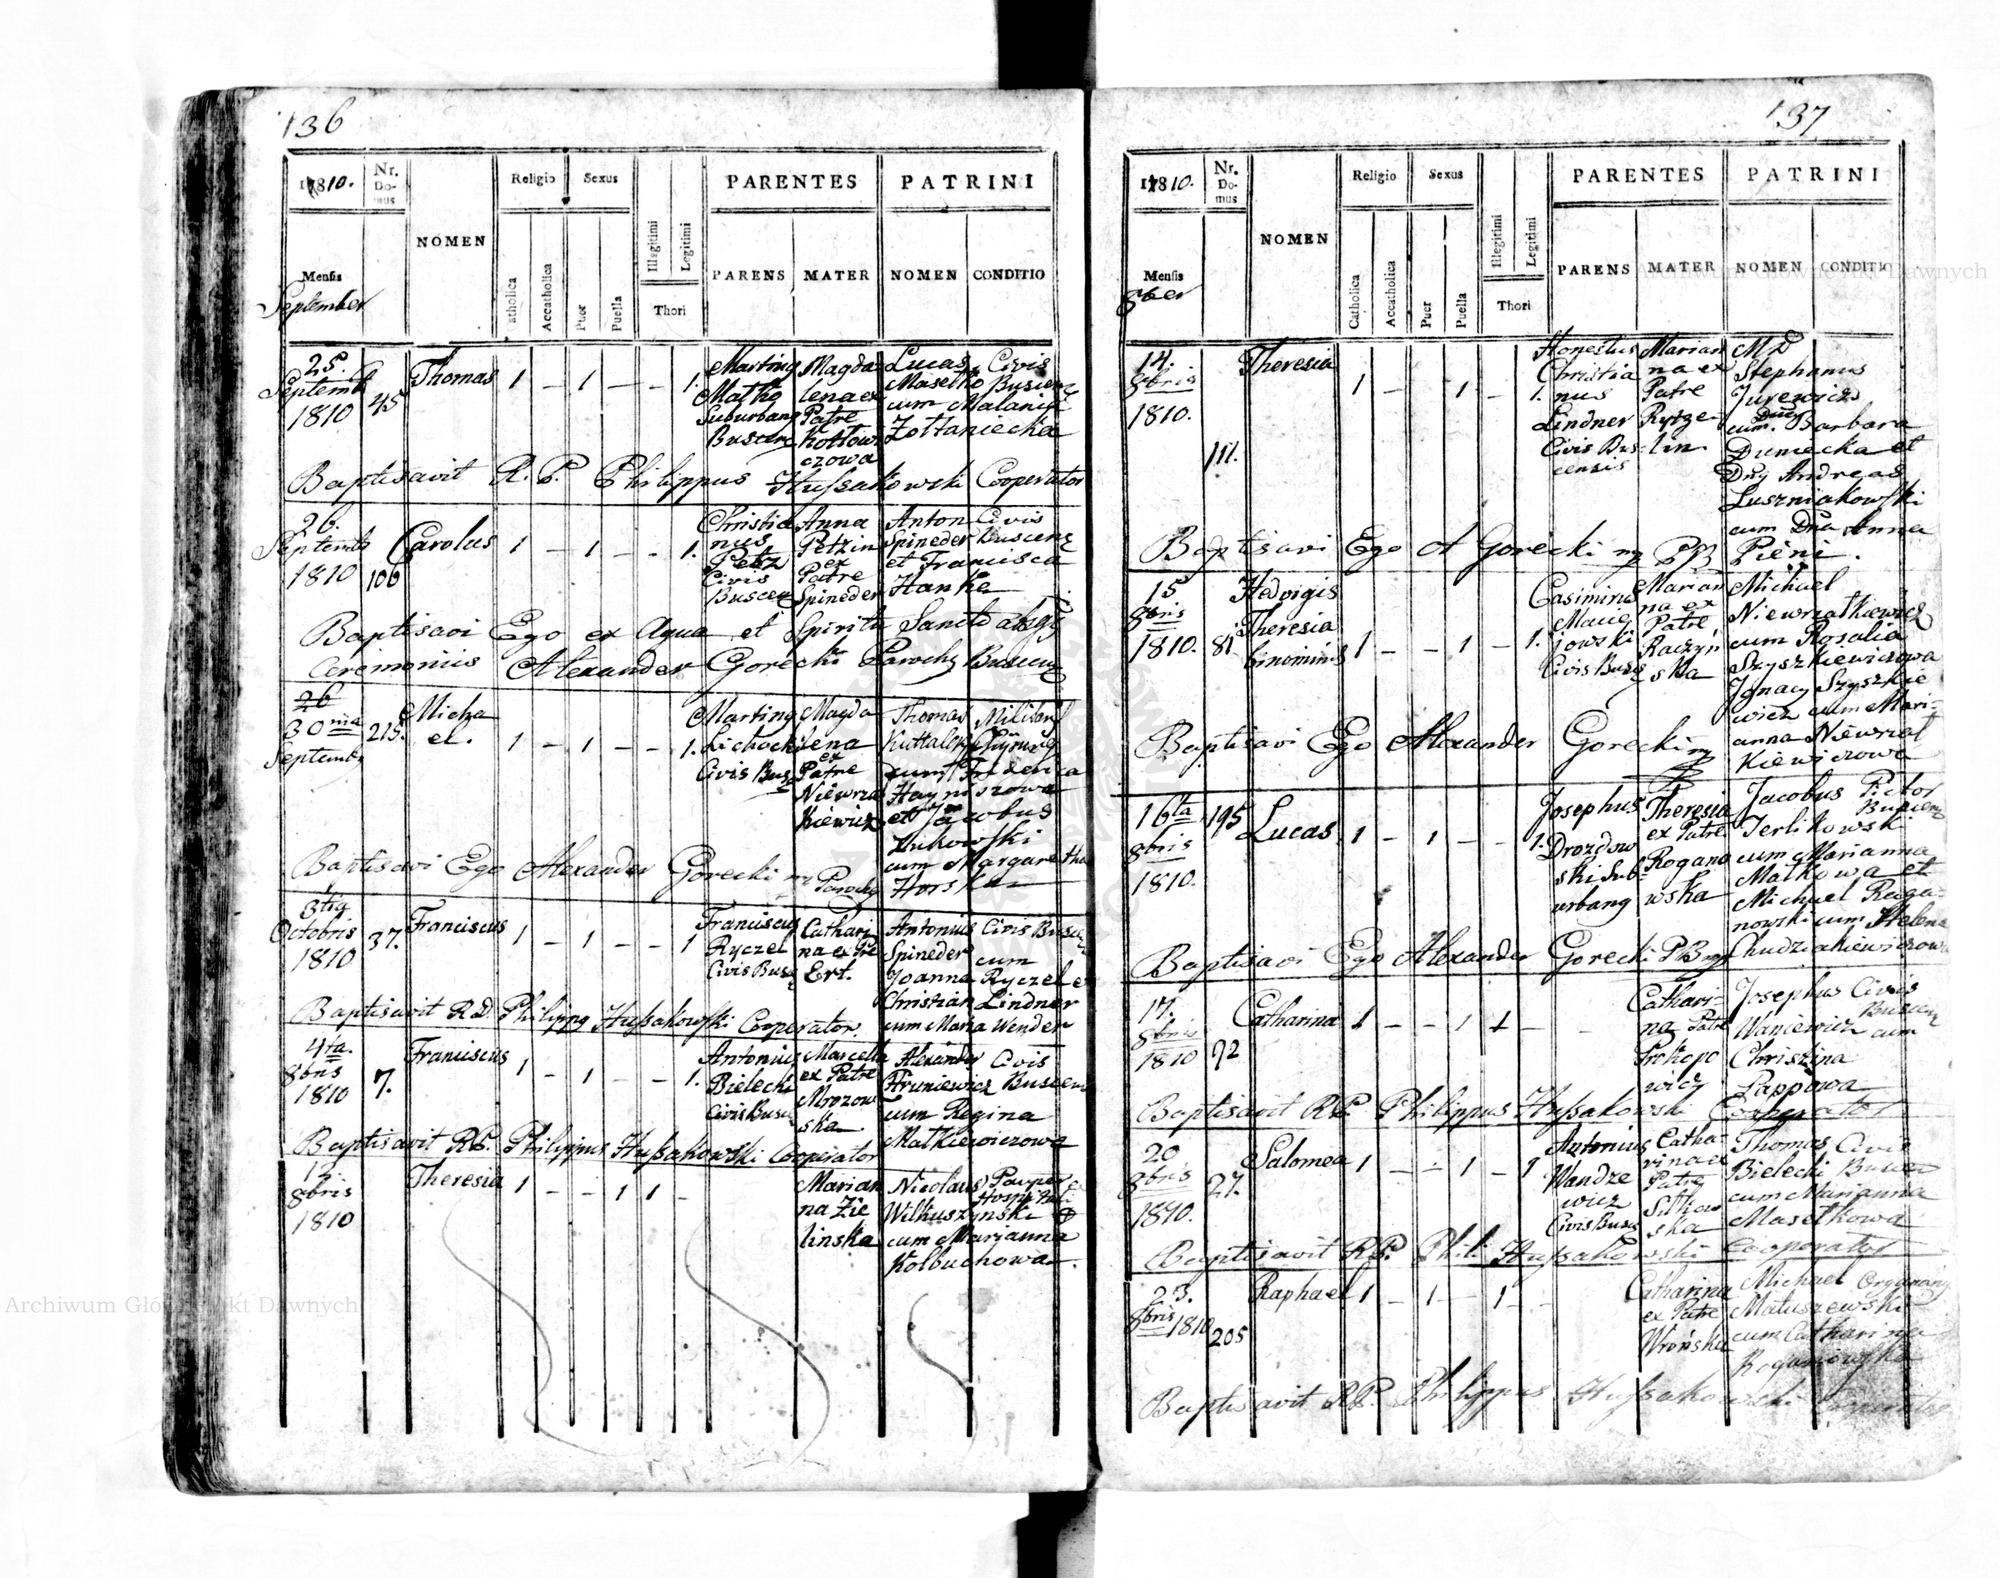 136
1810.
Nr. Do-mus
NOMEN
Religio
Sexus
PARENTES
PATRINI
Mensis
September
Catholica
Accatholica
Puer
Puella
Illegitimi
Legitimi
Thori
PARENS
MATER
NOMEN
CONDITIO
25.
Septemb
1810
45
Thomas
1 – 1 – – 1.
Marting
Matko
Suburbang
Magda
lena ex
Patre
Kotłow
czowa
Lucas Civis
Masetko
cum Malania
Zołtaniecka
Baptisavit R. P. Philippus Hussakowski Cooperator
26.
Septemb
1810
106
Carolus
1 – 1 – – 1.
Christia
nus
Petz
Civis
Anna
Petzin
ex
Patre
Spineder
Anton Civis
Spineder
et Francisca
Hanka
Baptisavi Ego ex Aqua et Spiritu Sancto absq
Ceremoniis Alexander Gorecki Parochg
26
30ma
Septemb
215.
Micha
el.
1 – 1 – – 1.
Marting
Lichocki
Civis Busc
Magda
lena
ex
Patre
Niewrza
kiewicz
Thomas
cum Frederica
et Jacobus
cum Margaretha
Horska
Baptisavi Ego Alexander Gorecki
Parochg
3tia
Octobris
1810
37.
Franciscus
1 – 1 – – 1
Franciscus
Ryczel
Civis Busc
Cathari
na ex Pre
Ert.
Antonius Civis
Spineder cum
Joanna Ryczel et
Christian Lindner
cum Maria Wender
Baptisavit RD Philippg Hussakowski Cooperator
4ta
8bris
1810
7.
Franciscus
1 – 1 – – 1.
Antonius
Bielecki
Civis Busc
Marcella
ex Patre
Mrozow
ska
Alexander Civis
Hruniewicz
cum Regina
Matkiewiczowa
Baptisavit RP. Philippus Hussakowski Cooperator
8bris
1810
Theresia
1 – – 1 1 –
Marian
na Zie
linska
Nicolaus Pauper
Wilkuszynski
cum Maryanna
Kolbuchowa
137
1810.
Nr. Do-mus
NOMEN
Religio
Sexus
PARENTES
PATRINI
Mensis
8ber
Catholica
Accatholica
Puer
Puella
Illegitimi
Legitimi
Thori
PARENS
MATER
NOMEN
CONDITIO
14.
8bris
1810.
111.
Theresia
1 – – 1 – 1.
Honestus
Christia
nus
Lindner
Civis Bus
censis
Marian
na ex
Patre
Rytze
lin
MD
Stephanus
Jurewicz
cum Barbara
Duniecka et
Dng Andreas
Luszniakowski
cum Dna Anna
Pieni.
Baptisavi Ego A Gorecki
15
8bris
1810.
81
Hedvigis
Theresia
binominis
1 – – 1 – 1.
Casimirus
Macie
jowski
Civis Busc
Marian
na ex
Patre
Raczyń
ska
Michael
Niewrzatkiewicz
cum Rosalia
Szyszkiewiczowa
Ignacy Szyszkie
wicz cum Mari-
anna Niewrzat
kiewiczowa
Baptisavi Ego Alexander Gorecki
16ta
8bris
1810.
195
Lucas
1 – 1 – – 1.
Josephus
Drozdow
ski Sub
urbang
Theresia
ex Patre
Rogano
wska
Jacobus Pictor
Jerlikowski
cum Marianna
Malkowa et
Michael Roga-
nowski cum Helena
Chudziakiewiczowa
Baptisavi Ego Alexander Gorecki
17.
8bris
1810
92
Catharina
1 – – 1 1 – –
Cathari-
na Patre
Prokopo
wicz
Josephus Civis
Waniewicz cum
Christina
Pappowa
Baptisavit RP. Philippus Hussakowski Cooperator
20
8bris
1810.
27.
Salomea
1 – – 1 – 1
Antonius
Wandze
wicz
Civis Busc
Catha-
rina ex
Patre
ska
Thomas Civis
Bielecki
cum Marianna
Masetkowa
Baptisavit RP. Phili Hussakowski Cooperator
23.
8bris 1810
205
Raphael
1 – 1 – 1 –
Catharina
ex Patre
Wrońska
Michael
Matuszewski
cum Catharina
Roganowska
Baptisavit RP. Philippus Hussakowski Cooperator
Archiwum Główne Akt Dawnych
Archiwum Główne Akt Dawnych